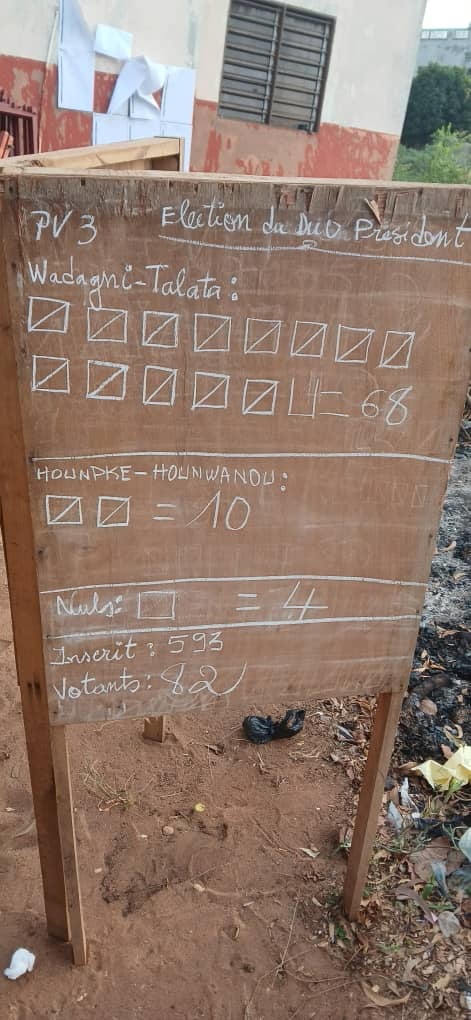 PV 3 Election du Duo Président
Wadagni-Talata :
= 68
HOUNPKE-HOUNWANOU :
= 10
Nuls: = 4
Inscrit : 593
Votants : 82